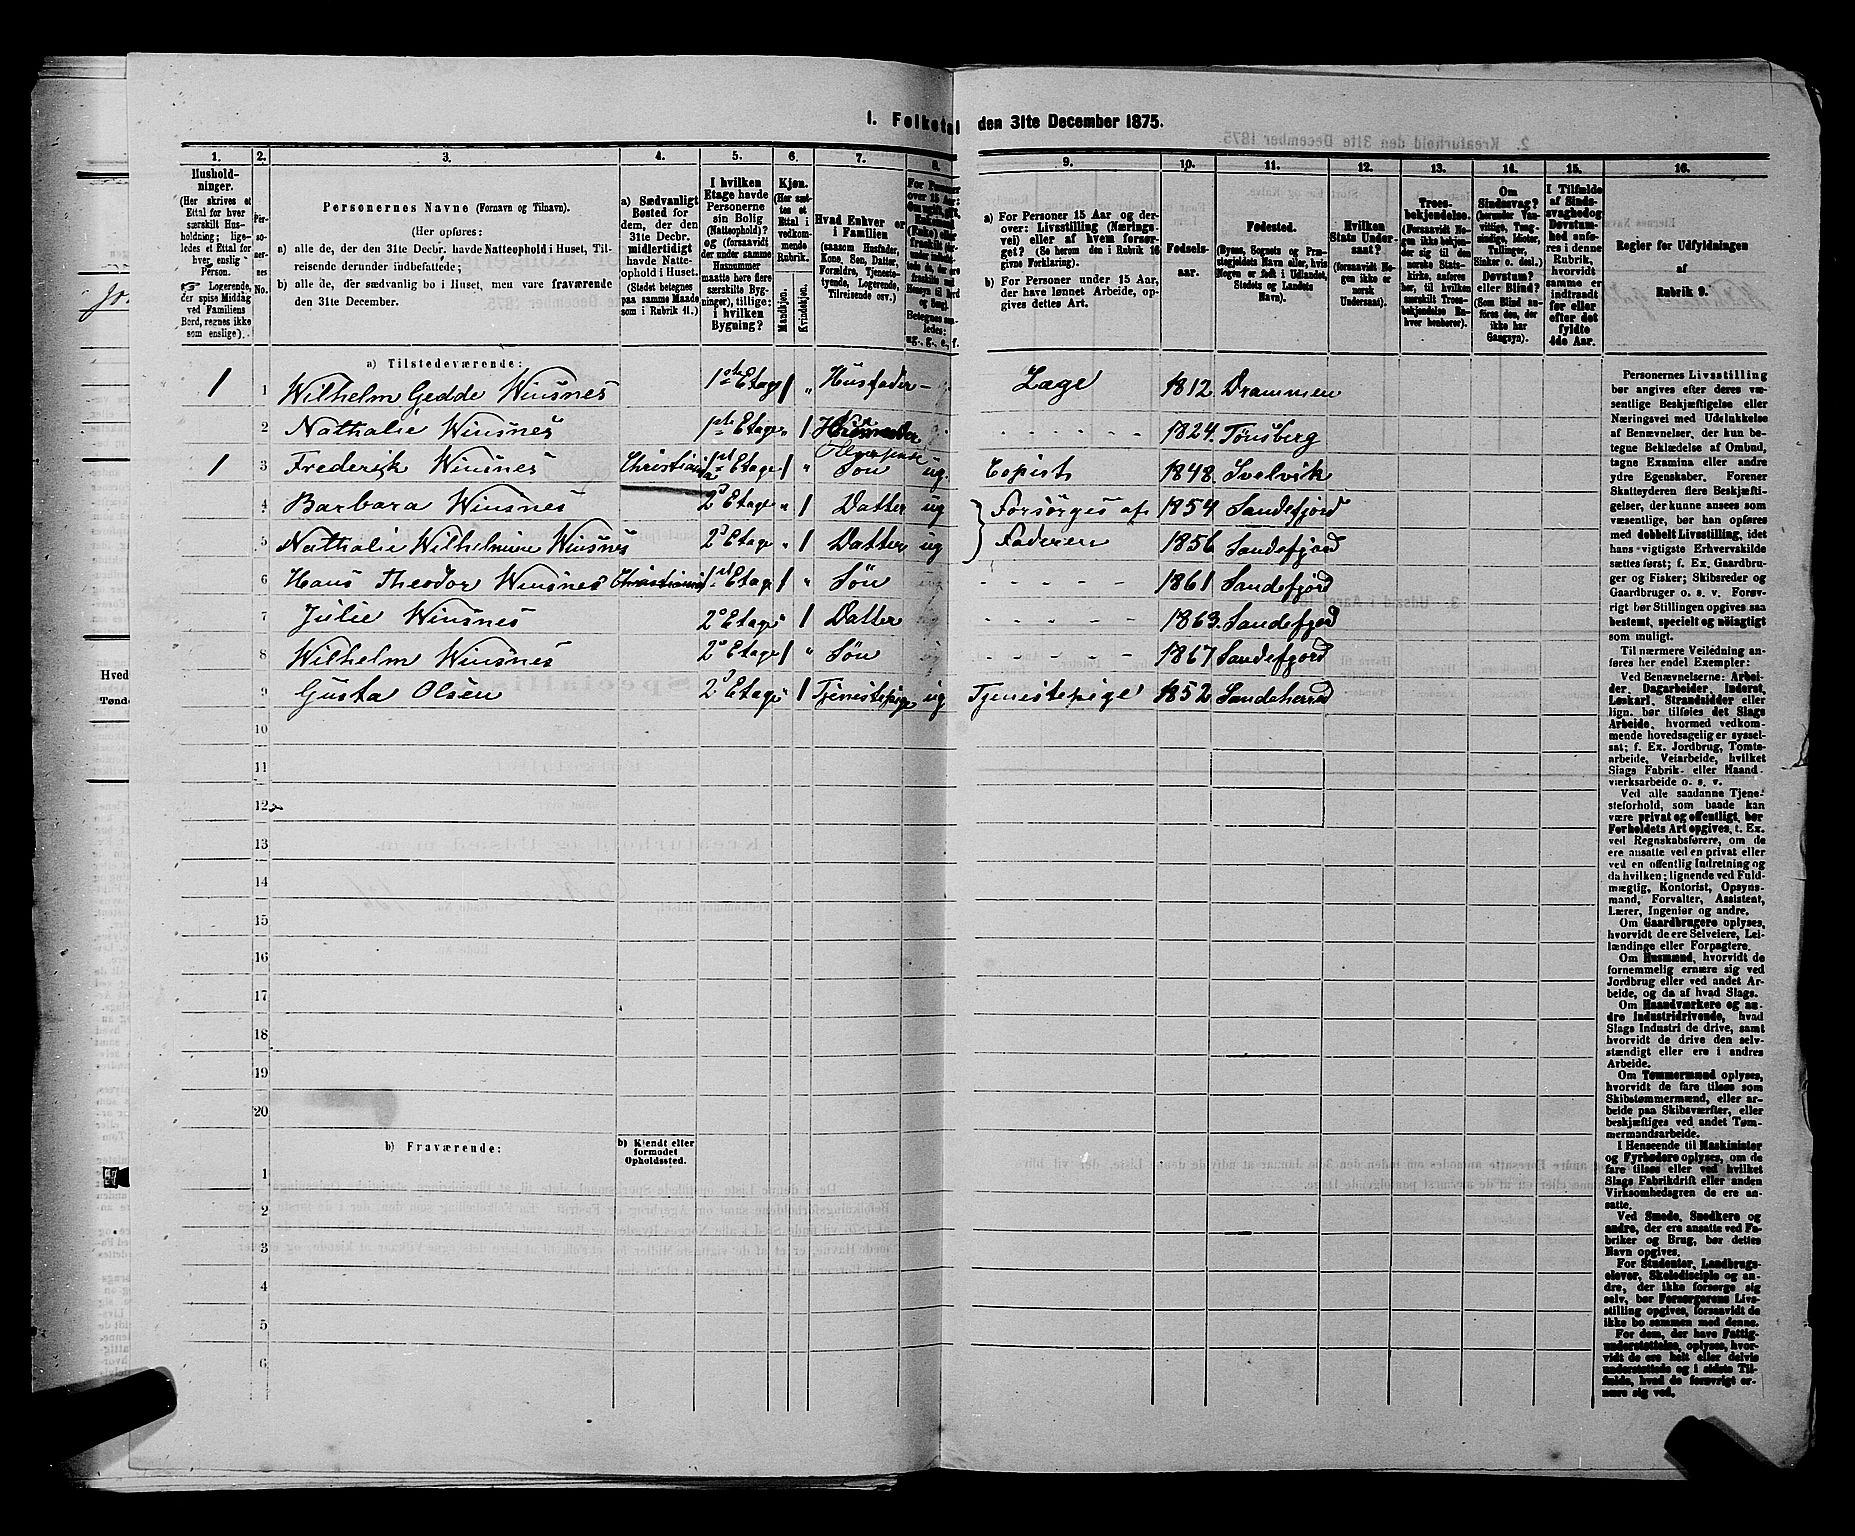 I. Folketal den 31te December 1875.
1. 2. 3. 4. 5. 6. 7. 8. 9. 10. 11. 12. 13. 14. 15. 16.
Husholdninger.
(Her skrives et
Ettal for hver
særskilt Husholdning; ligeledes et Ettal for
hver enslig
Person.
Logerende,
der spise Middag
ved Familiens
Bord, regnes ikke
som enslige).
Personernes No.
Personernes Navne (Fornavn og Tilnavn).
(Her opføres:
a) alle de, der den 31te Decbr. havde Natteophold i Huset, Tilreisende derunder indbefattede;
b) alle de, der sædvanlig bo i Huset, men vare fraværende
den 31te December.
a) Sædvanligt
Bosted for
dem, der den
31te Decbr.
midlertidigt
havde Natteophold i Huset.
(Stedet betegnes
paa samme Maade
som i Rubrik 11.)
I hvilken
Etage havde
Personerne
sin Bolig
(Natteophold)?
og (forsaavidt
der under samme
Husnummer
maatte høre flere
særskilte Bygninger), tillige:
i hvilken
Bygning?
Kjøn.
(Her sættes et
Ettal i
vedkommende
Rubrik.
Mandkjøn.
Kvindekjøn.
Hvad Enhver er
i Familien
(saasom Husfader,
Kone, Søn, Datter,
Forældre, Tjenestetyende, Logerende,
Tilreisende osv.)
For Personer
over 15 Aar:
Betegnes saaledes:
ug., g., e., f.
a) For Personer 15 Aar og derover: Livsstilling (Næringsvei) eller af hvem forsørget? (Se herom den i Rubrik 16
givne Forklaring).
b) For Personer under 15 Aar,
der have lønnet Arbeide, opgives dettes Art.
Fødselsaar.
Fødested.
(Byens, Sognets og Præstegjeldets Navn eller, hvis
Nogen er født i Udlandet,
Stedets og Landets
Navn).
Hvilken
Stats Undersaat?
(forsaavidt Nogen ikke er
norsk
Undersaat).
Troesbekjendelse.
(Forsaavidt Nogen ikke bekjender sig til den
norske Statskirke, anføres
her, til hvilken
særskilt Troesbekjendelse Enhver henhører).
Om
Sindssvag?
(herunder Vanvittige, Tungsindige, Idioter,
Tullinger,
Sinker o. desl.)
Døvstum?
eller Blind?
(Som Blind anføres den, der
ikke har
Gangsyn).
I Tilfælde
af Sindssvaghed og
Døvstumhed anføres i denne
Rubrik,
hvorvidt
samme er
indtraadt
før eller
efter det
fyldte
4de Aar.
Regler for Udfyldningen
af
Rubrik 9.
a) Tilstedeværende:
1 1 Wilhelm Gedde Winsnes 1ste Etage 1 " Husfader Læge 1812 Drammen
2 Nathalie Winsnes 1ste Etage " 1 - - - - - - 1824 Tønsberg
1 3 Frederik Winsnes Christiania 1st Etage 1 " Søn ug. Copist 1848 Svelvik
4 Barbara Winsnes 2d Etage " 1 Datter ug Forsørges af 1854 Sandefjord
5 Nathalie Wilhelmine Winsnes 2d Etage " 1 Datter ug Faderen 1856 Sandefjord
6 Hans Theodor Winsnes Christiania 1st Etage 1 " Søn - - - - - 1861 Sandefjord
7 Julie Winsnes 2d Etage " 1 Datter - - - - - 1863 Sandefjord
8 Wilhelm Winsnes 2d Etage 1 " Søn - - - - - 1867 Sandefjord
9 Gusta Olsen 2d Etage " 1 Tjenestepige ug Tjenestepige 1852 Sandeherred
10
11
12
13
14
15
16
17
18
19
20
b) Fraværende:
b) Kjendt eller
formodet
Opholdssted.
1
2
3
4
5
6
Personernes Livsstilling
bør angives efter deres væsentlige Beskjæftigelse eller
Næringsvei med Udelukkelse
af Benævnelser, der kun betegne Beklædelse af Ombud,
tagne Examina eller andre
ydre Egenskaber. Forener
Skatteyderen flere Beskjæftigelser, der kunne ansees som
væsentlige, bør han opføres
med dobbelt Livsstilling, idet
hans vigtigste Erhvervskilde
sættes først; f. Ex. Gaardbruger og Fisker; Skibsreder og
Gaardbruger o. s. v. Forøvrigt bør Stillingen opgives saa
bestemt, specielt og nøiagtigt
som muligt.
Til nærmere Veiledning anføres her endel Exempler:
Ved Benævnelserne: Arbeider, Dagarbeider, Inderst,
Løskarl, Strandsidder eller
lign. bør tilføies det Slags
Arbeide, hvormed vedkommende hovedsagelig er sysselsat; f. Ex. Jordbrug, Tomtearbeide, Veiarbeide, hvilket
Slags Fabrik- eller Haandværksarbeide o. s. v.
Ved alle saadanne Tjenesteforhold, som baade kan
være privat og offentligt, bør
Forholdets Art opgives, t. Ex.
ved Regnskabsførere, om de
ere ansatte ved en privat eller
ved en offentlig Indretning og
da hvilken; lignende ved Fuldmægtig, Kontorist, Opsynsmand, Forvalter, Assistent,
Lærer, Ingeniør og andre.
Om Gaardbrugere oplyses,
hvorvidt de ere Selveiere, Leilændinge eller Forpagtere.
Om Husmænd, hvorvidt de
fornemmelig ernære sig ved
Jordbrug eller ved andet Arbeide, og da af hvad Slags.
Om Haandværkere og andre Industridrivende, hvad
Slags Industri de drive, samt
hvorvidt de drive den selvstændigt eller ere i andres
Arbeide.
Om Tømmermænd oplyses,
hvorvidt de fare tilsøs som
Skibstømmermænd, eller arbeide paa Skibsværfter, eller
beskjæftiges ved andet Tømmermandsarbeide.
I Henseende til Maskinister
og Fyrbødere oplyses, om de
fare tilsøs eller ved hvilket
Slags Fabrikdrift eller anden
Virksomhedsgren de ere ansatte.
Ved Smede, Snedkere og
andre, der ere ansatte ved Fabriker og Brug, bør dettes
Navn opgives.
For Studenter, Landbrugselever, Skoledisciple og andre, der ikke forsørge sig
selv, bør Forsørgerens Livsstilling opgives, forsaavidt de
ikke bo sammen med denne.
For dem, der have Fattigunderstøttelse, oplyses, hvorvidt de ere helt eller delvis
understøttede og i sidste Tilfælde, hvad de forøvrigt ernære sig ved.